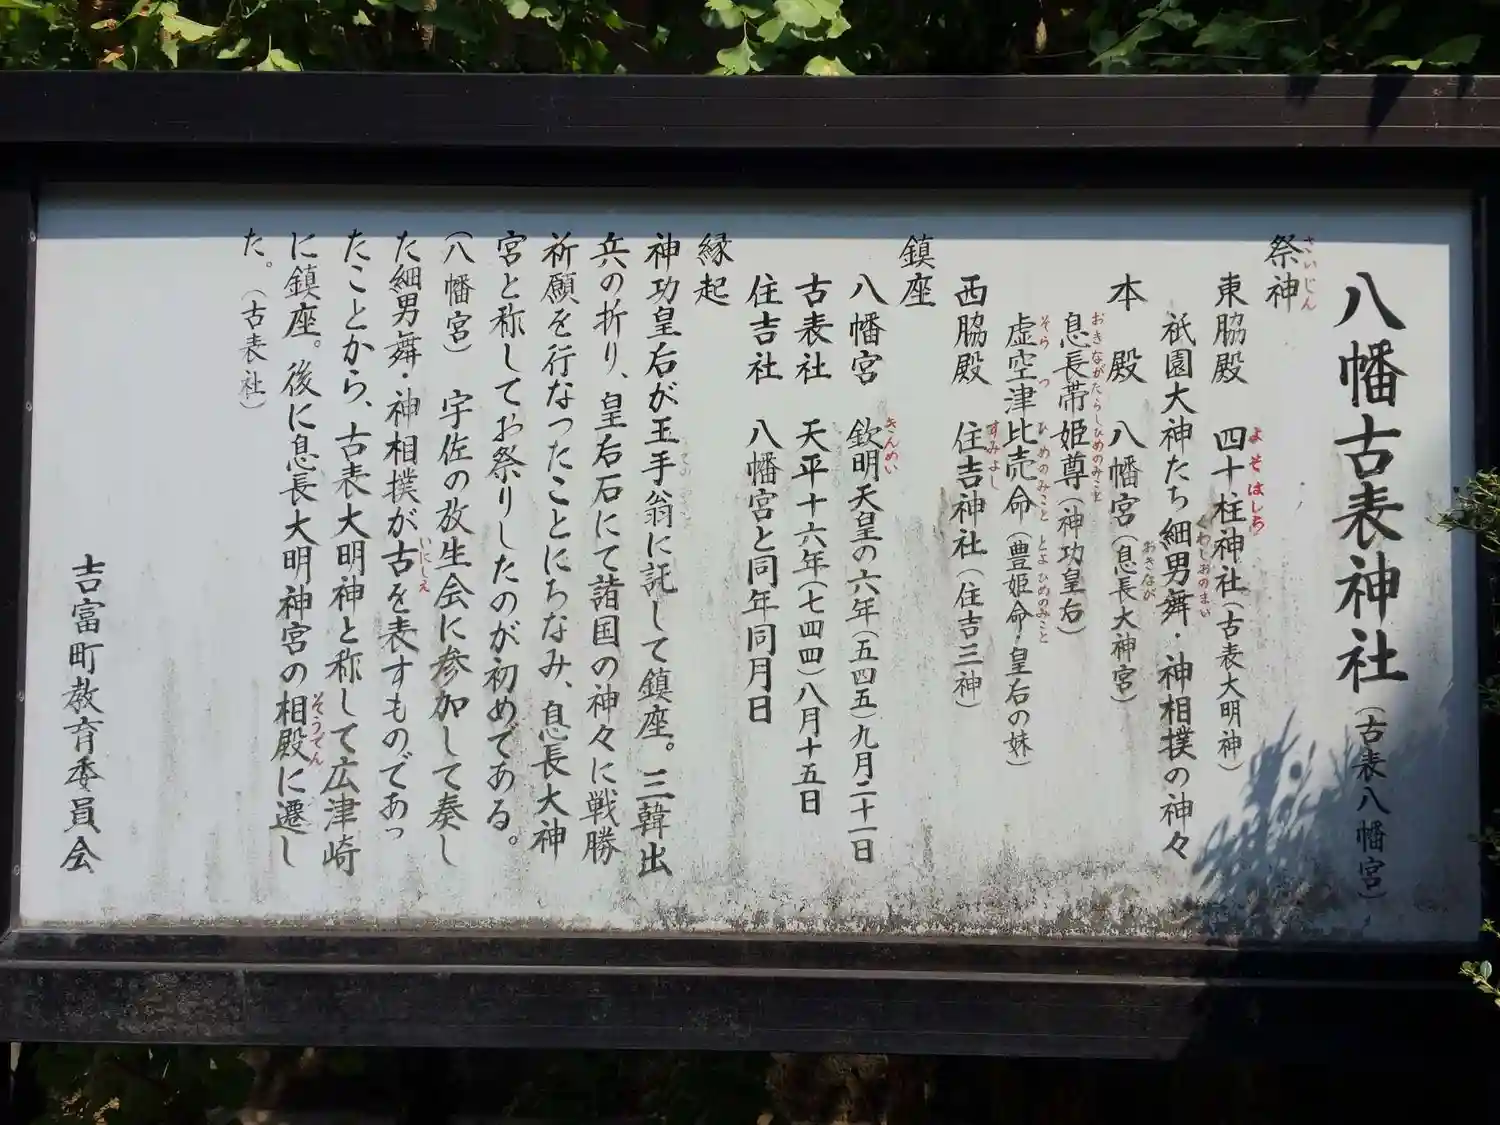 八幡古表神社（古表八幡宮）
祭神
東脇殿　四十柱神社（古表大明神）
祇園大神たち細男舞・神相撲の神々
本　殿　八幡宮（息長大神宮）
息長帯姫尊（神功皇后）
虚空津比売命（豊姫命・皇后の妹）
西脇殿　住吉神社（住吉三神）
鎮座
八幡宮　欽明天皇の六年（五四五）九月二十一日
古表社　天平十六年（七四四）八月十五日
住吉社　八幡宮と同年同月日
縁起
神功皇后が玉手翁に託して鎮座。三韓出
兵の折り、皇后石にて諸国の神々に戦勝
祈願を行なったことにちなみ、息長大神
宮と称してお祭りしたのが初めである。
（八幡宮）　宇佐の放生会に参加して奏し
た細男舞・神相撲が古を表すものであっ
たことから、古表大明神と称して広津崎
に鎮座。後に息長大明神宮の相殿に遷し
た。（古表社）
吉富町教育委員会
さいじん
よそはしら
くわしおのまい
おきなが
おきながたらしひめのみこと
そらつひめのみこと
とよひめのみこと
すみよし
きんめい
いにしえ
そうでん